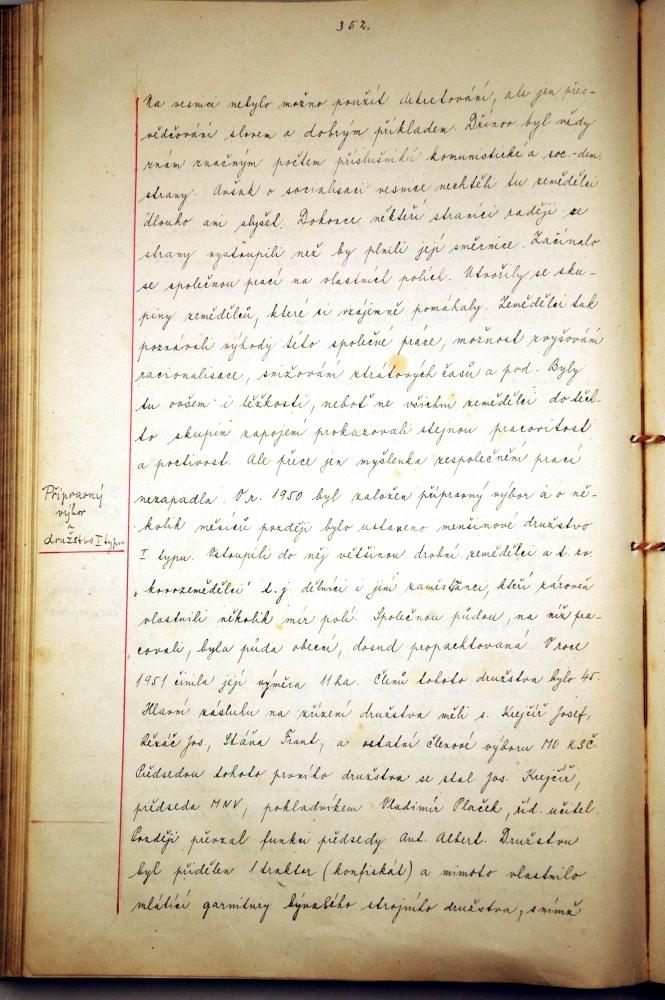 352.
Na vesnici nebylo možno použít dekretování, ale jen přes-
vědčování slovem a dobrým příkladem. Dřínov byl vždy
znám značným počtem příslušníků komunistické a soc.-dem.
strany. Avšak o socialisaci vesnice nechtěli tu zemědělci
dlouho ani slyšet. Dokonce někteří straníci raději ze
strany vystoupili než by plnili její směrnice. Začínalo
se společnou prací na vlastních polích. Utvořily se sku-
piny zemědělců, které si vzájemně pomáhaly. Zemědělci tak
poznávali výhody této společné práce, možnost zvyšování
racionalisace, snižování ztrátových časů a pod. Byly
tu ovšem i těžkosti, neboť ne všichni zemědělci do těch-
to skupin zapojení prokazovali stejnou pracovitost
a poctivost. Ale přece jen myšlenka zespolečnění prací
nezapadla. V r. 1950 byl založen přípravný výbor a o ně-
kolik měsíců později bylo ustaveno menšinové družstvo
I typu. Vstoupili do něj většinou drobní zemědělci a t. zv.
„kovozemědělci" t.j. dělníci i jiní zaměstnanci, kteří zároveň
vlastnili několik mír polí. Společnou půdou, na níž pra-
covali, byla půda obecní, dosud propachtovaná. V roce
1951 činila její výměra 11 ha. Členů tohoto družstva bylo 45.
Hlavní zásluhu na zřízení družstva měli s. Krejčíř Josef,
Jos., Stáňa Frant., a ostatní členové výboru MO KSČ.
Předsedou tohoto prvního družstva se stal Jos. Krejčíř,
předseda MNV, pokladníkem Vladimír Plaček, říd. učitel.
Později převzal funkci předsedy Ant. Albert. Družstvu
byl přidělen 1 traktor (konfiskát) a mimoto vlastnilo
mlátící garnitury bývalého strojního družstva, s nimiž
Přípravný
výbor
a
družstvo I typu